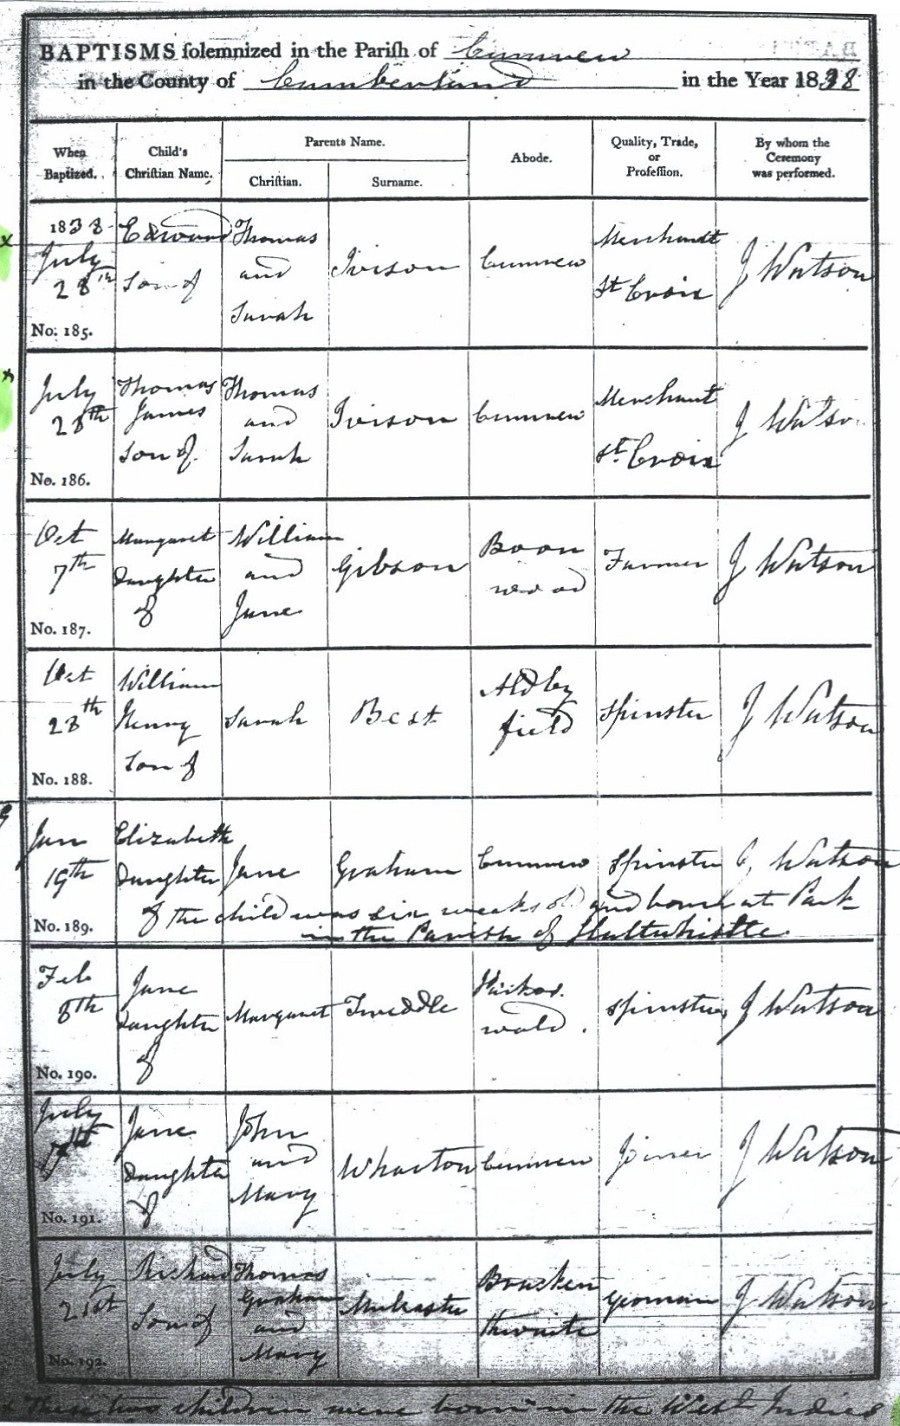 BAPTISMS solemnized in the Parish of Cumrew
in the County of Cumberland in the Year 1838
When Baptized.
Child's Christian Name.
Parents Name.
Christian.
Surname.
Abode.
Quality, Trade, or Profession.
By whom the Ceremony was performed.
1838
July
28th
No. 185.
Edward
Son of
Thomas
and
Sarah
Ivison
Cumrew
Merchant
St Croix
J Watson
July
28th
No. 186.
Thomas
James
Son of
Thomas
and
Sarah
Ivison
Cumrew
Merchant
St Croix
J Watson
Oct
7th
No. 187.
Margaret
Daughter
of
William
and
Jane
Gibson
Farmer
J Watson
Oct
28th
No. 188.
William
Henry
Son of
Sarah
Best
Aldby
field
Spinster
J Watson
Jan
19th
No. 189.
Elizabeth
Daughter
of
Jane
Graham
Cumrew
Spinster
J Watson
the child was six weeks old and born at Park
in the Parish of Haltwhistle
Feb
8th
No. 190.
Jane
Daughter
of
Margaret
Tweddle
wald.
Spinster
J Watson
July
No. 191.
Jane
Daughter
of
John
and
Mary
Wharton
Cumrew
Joiner
J Watson
July
21st
No. 192.
Richard
Son of
Thomas
Graham
and
Mary
Mulcaster
Bracken
thwaite
Yeoman
J Watson
x These two children were born in the West Indies